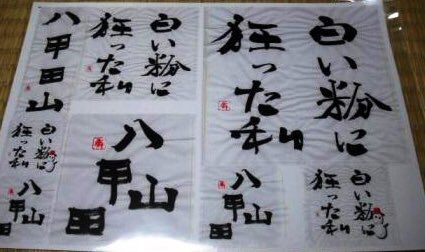 八甲田山
白い粉に
狂った私
白い粉に
狂った私
白い粉に
狂った私
八甲田山
八甲田山
八甲田山
白い粉に
狂った私